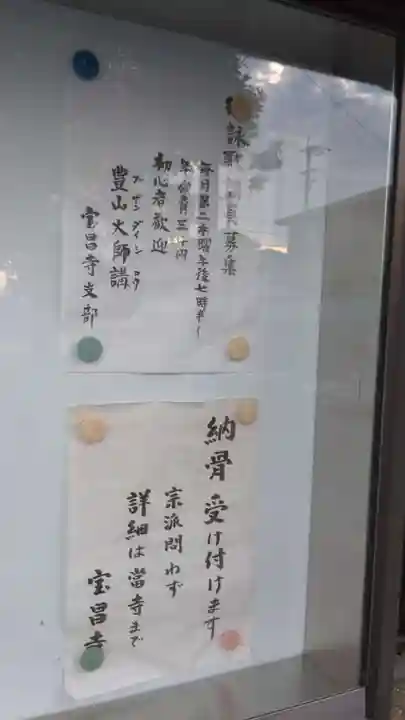 詠歌 員募集
毎月第二木曜午後七時半〜
年会費三千円
初心者歓迎
ブザンダイシコウ
豊山大師講
宝昌寺支部
納骨 受け付けます
宗派問わず
詳細は當寺まで
宝昌寺